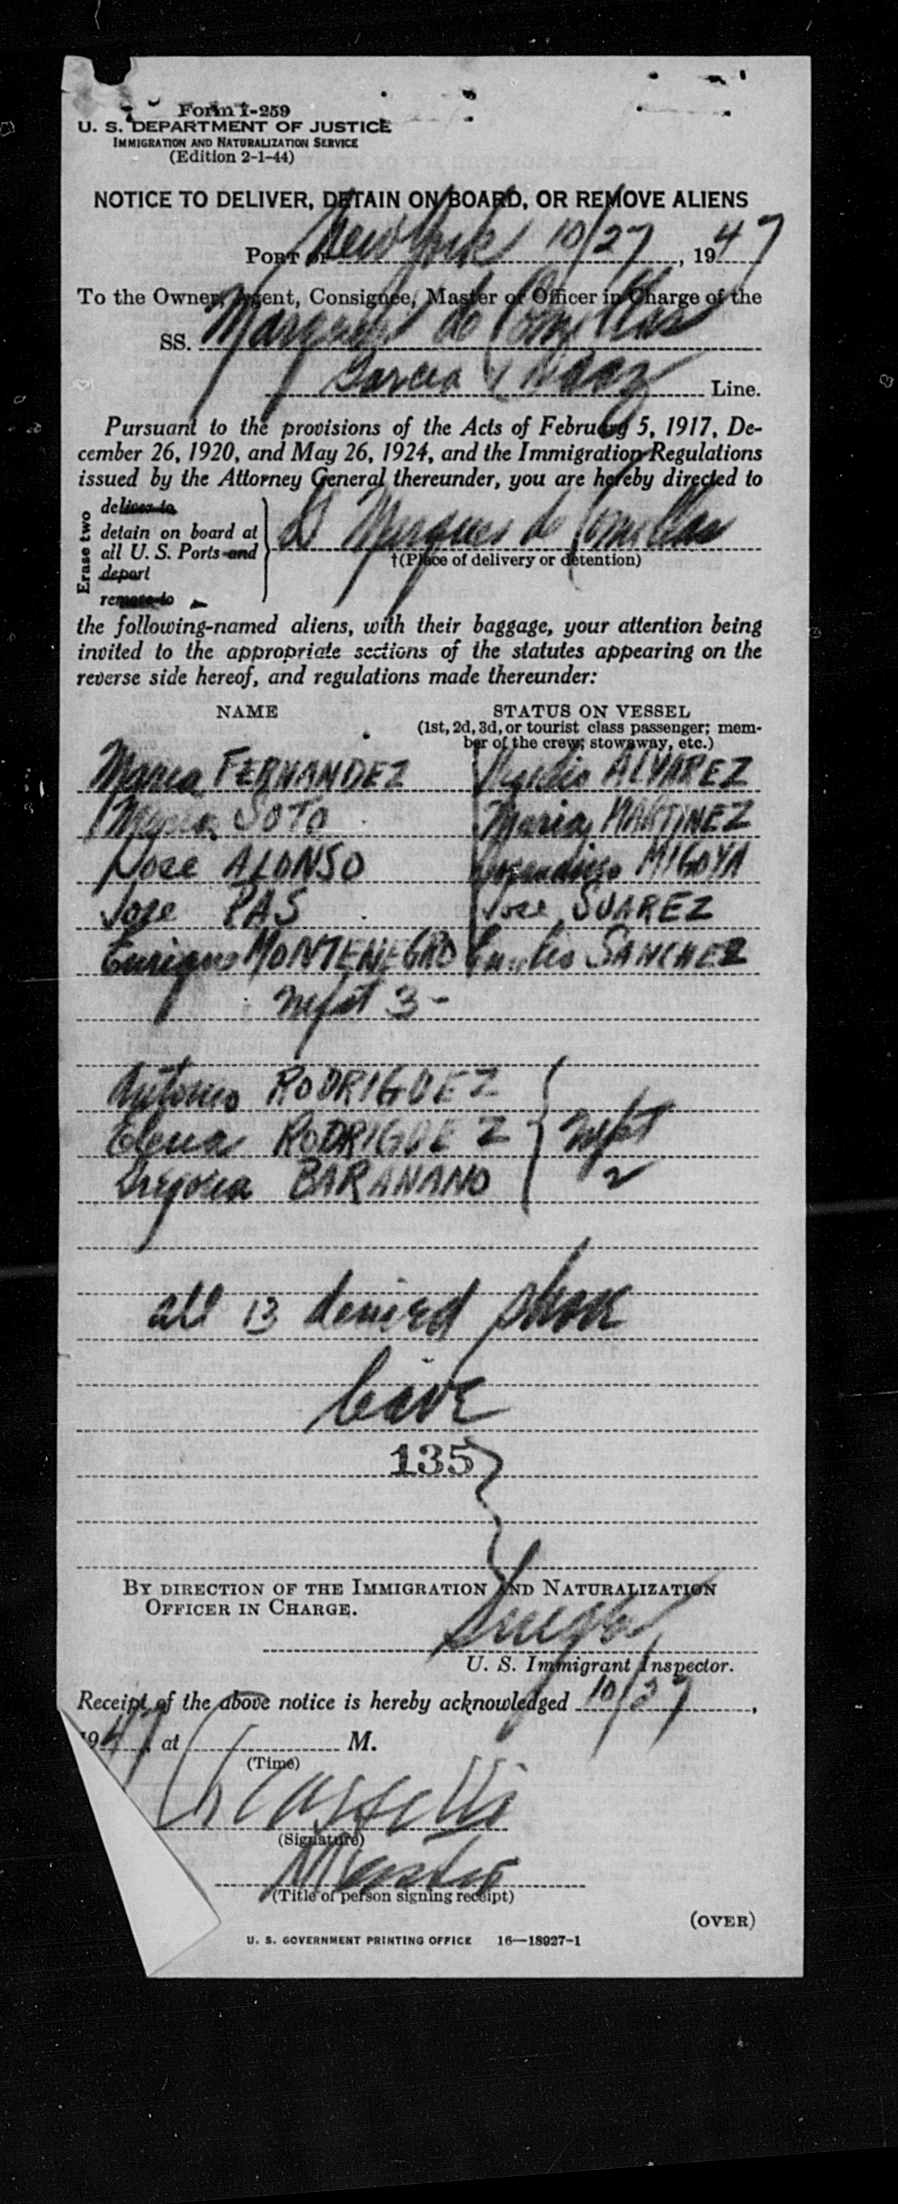 Form I-259
U. S. DEPARTMENT OF JUSTICE
IMMIGRATION AND NATURALIZATION SERVICE
(Edition 2-1-44)
NOTICE TO DELIVER, DETAIN ON BOARD, OR REMOVE ALIENS
PORT OF New York 10/27, 1947
To the Owner, Agent, Consignee, Master or Officer in Charge of the
SS. Marques de Comillas
Garcia & Diaz Line.
Pursuant to the provisions of the Acts of February 5, 1917, De-
cember 26, 1920, and May 26, 1924, and the Immigration Regulations
issued by the Attorney General thereunder, you are hereby directed to
Erase two
deliver to
detain on board at
all U. S. Ports and
depart
remove to
SS Marques de Comillas
†(Place of delivery or detention)
the following-named aliens, with their baggage, your attention being
invited to the appropriate sections of the statutes appearing on the
reverse side hereof, and regulations made thereunder:
NAME STATUS ON VESSEL
(1st, 2d, 3d, or tourist class passenger; mem-
ber of the crew; stowaway, etc.)
Maria FERNANDEZ ALVAREZ
Maria SOTO Maria MARTINEZ
Jose ALONSO MIGOYA
Jose PAS Jose SUAREZ
Enrique MONTENEGRO SANCHEZ
Mfst 3-
Antonio RODRIGUEZ
Elena RODRIGUEZ Mfst
Gregoria BARANANO 2
all 13 denied shore
leave
135
BY DIRECTION OF THE IMMIGRATION AND NATURALIZATION
OFFICER IN CHARGE.
U. S. Immigrant Inspector.
Receipt of the above notice is hereby acknowledged 10/27,
1947, at M.
(Time)
(Signature)
Master
(Title of person signing receipt)
(OVER)
U. S. GOVERNMENT PRINTING OFFICE 16—18927-1